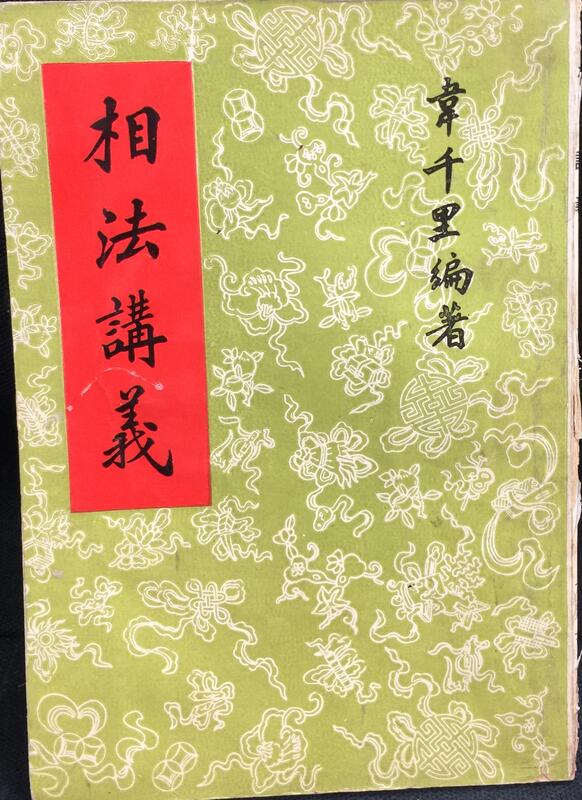 韋千里編著
相法講義